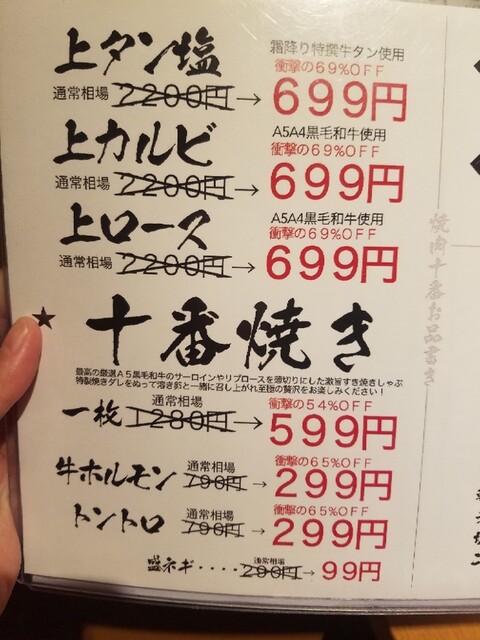 上タン塩
霜降り特撰牛タン使用
衝撃の69%OFF
通常相場 2200円→699円
上カルビ
A5A4黒毛和牛使用
衝撃の69%OFF
通常相場 2200円→699円
上ロース
A5A4黒毛和牛使用
衝撃の69%OFF
通常相場 2200円→699円
★十番焼き
最高の厳選A5黒毛和牛のサーロインやリブロースを薄切りにした激旨すき焼きしゃぶ
特製焼きダレをぬって溶き卵と一緒に召し上がれ至極の贅沢をお楽しみください!
一枚 通常相場 1280円→
衝撃の54%OFF
599円
牛ホルモン 通常相場 790円→
衝撃の65%OFF
299円
トントロ 通常相場 790円→
衝撃の65%OFF
299円
塩ネギ・・・・通常相場 290円→99円
焼肉十番お品書き